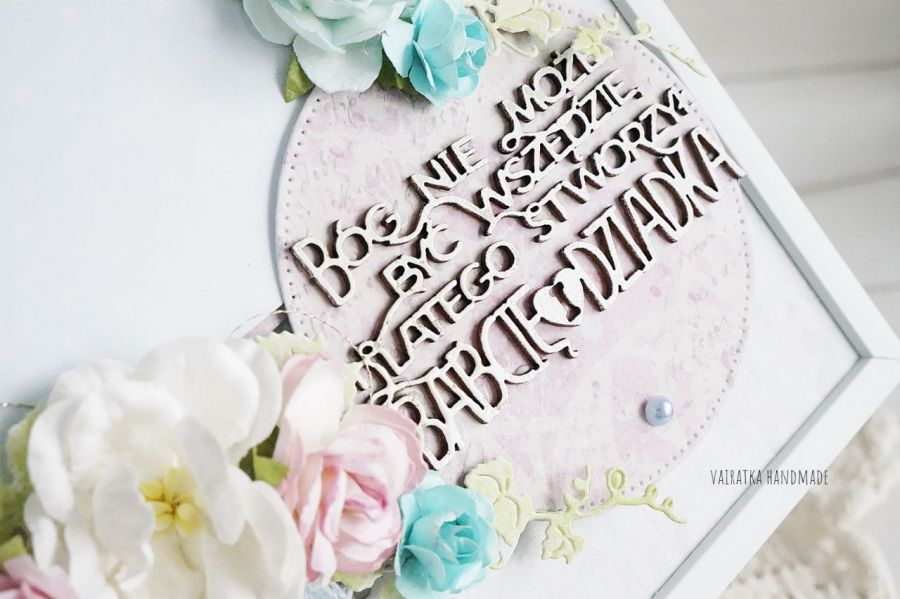 BÓG NIE MOŻE
BYĆ WSZĘDZIE
DLATEGO STWORZYŁ
BABCIĘ I DZIADKA
VAIRATKA HANDMADE